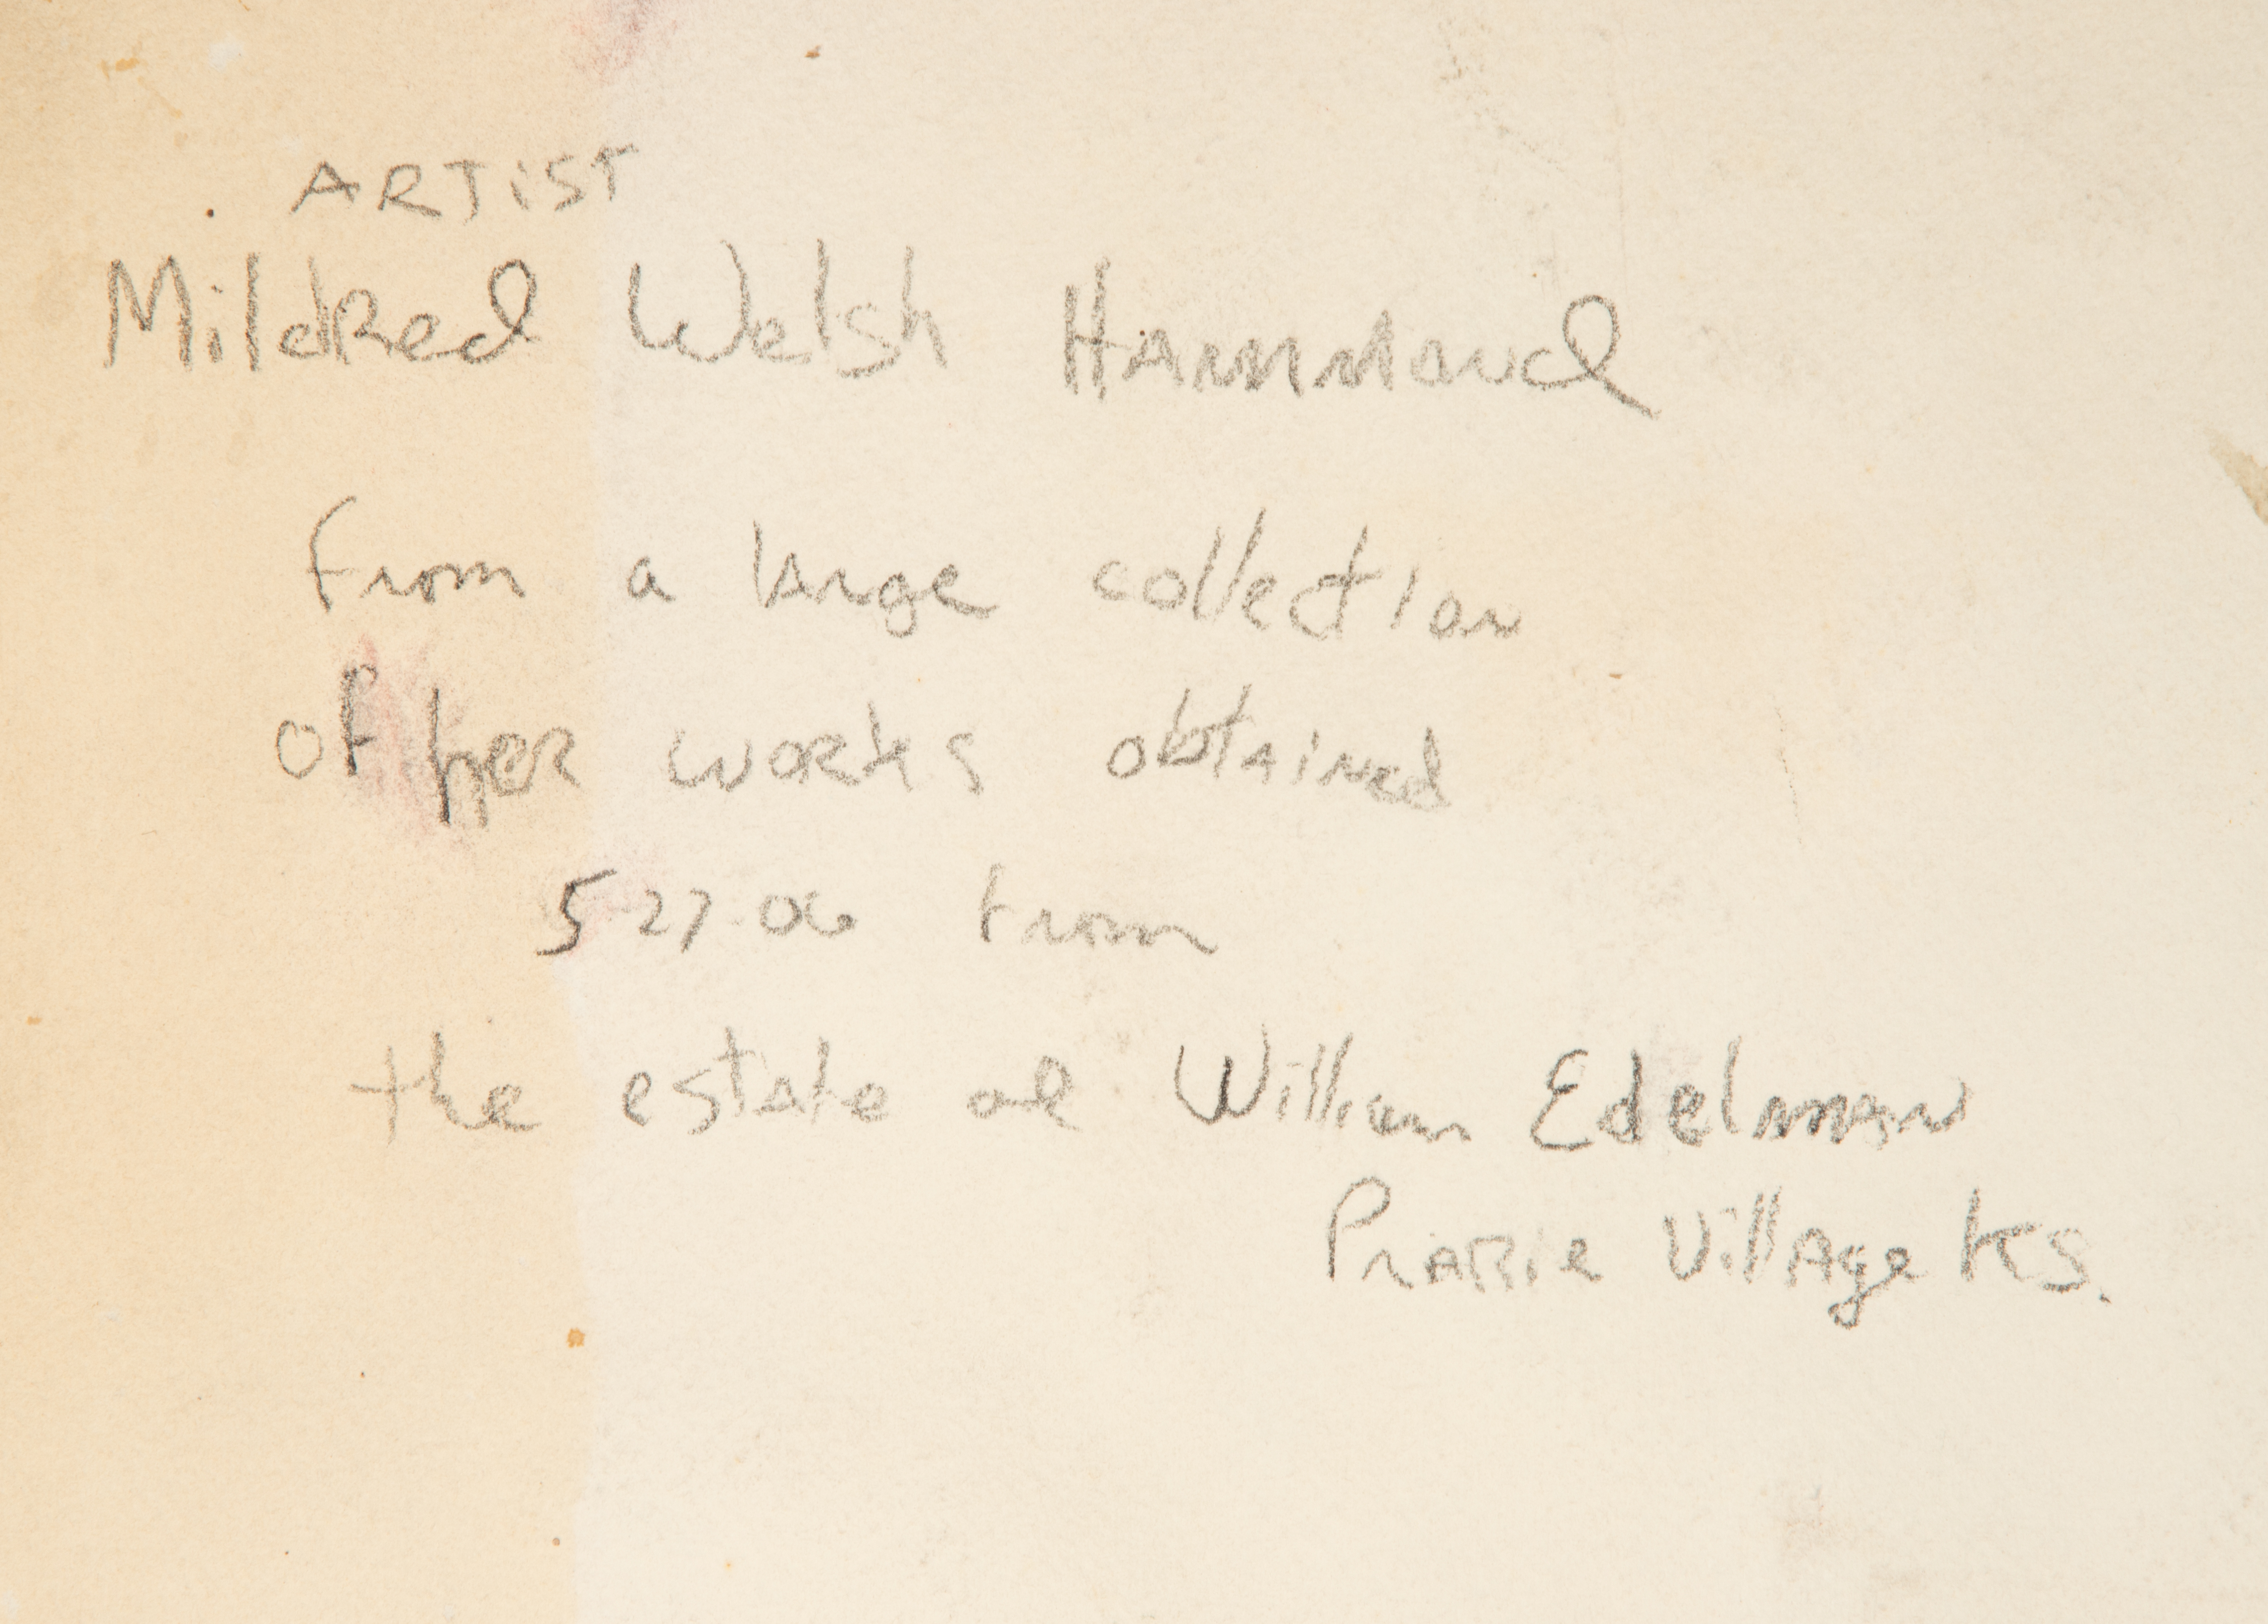 ARTiST
Mildred Welsh Hammond
from a large collection
of her works obtained
5-27-06 from
the estate of William Edelman
Prarie Village KS.